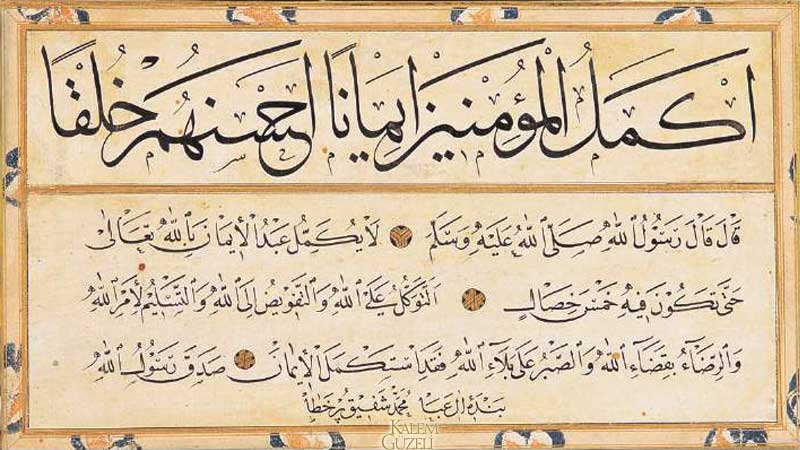 اَكْمَلُ الْمُؤْمِنِينَ اِيمَانًا اَحْسَنُهُمْ خُلُقًا
قَالَ قَالَ رَسُولُ اللهِ صَلَّى اللهُ عَلَيْهِ وَسَلَّمَ لَا يُكَمِّلُ عَبْدُ الْاِيمَانَ بِاللهِ تَعَالٰى
حَتَّى تَكُونَ فِيهِ خَمْسُ خِصَالٍ اَلتَّوَكُّلُ عَلَى اللهِ وَالتَّفْوِيضُ اِلَى اللهِ وَالتَّسْلِيمُ لِاَمْرِ اللهِ
وَالرِّضَاءُ بِقَضَاءِ اللهِ وَالصَّبْرُ عَلَى بَلَاءِ اللهِ فَقَدِ اسْتَكْمَلَ الْاِيمَانَ صَدَقَ رَسُولُ اللهِ
بندهٔ آل عبا محمد شفيق پرخطا
KALEM
GUZELİ